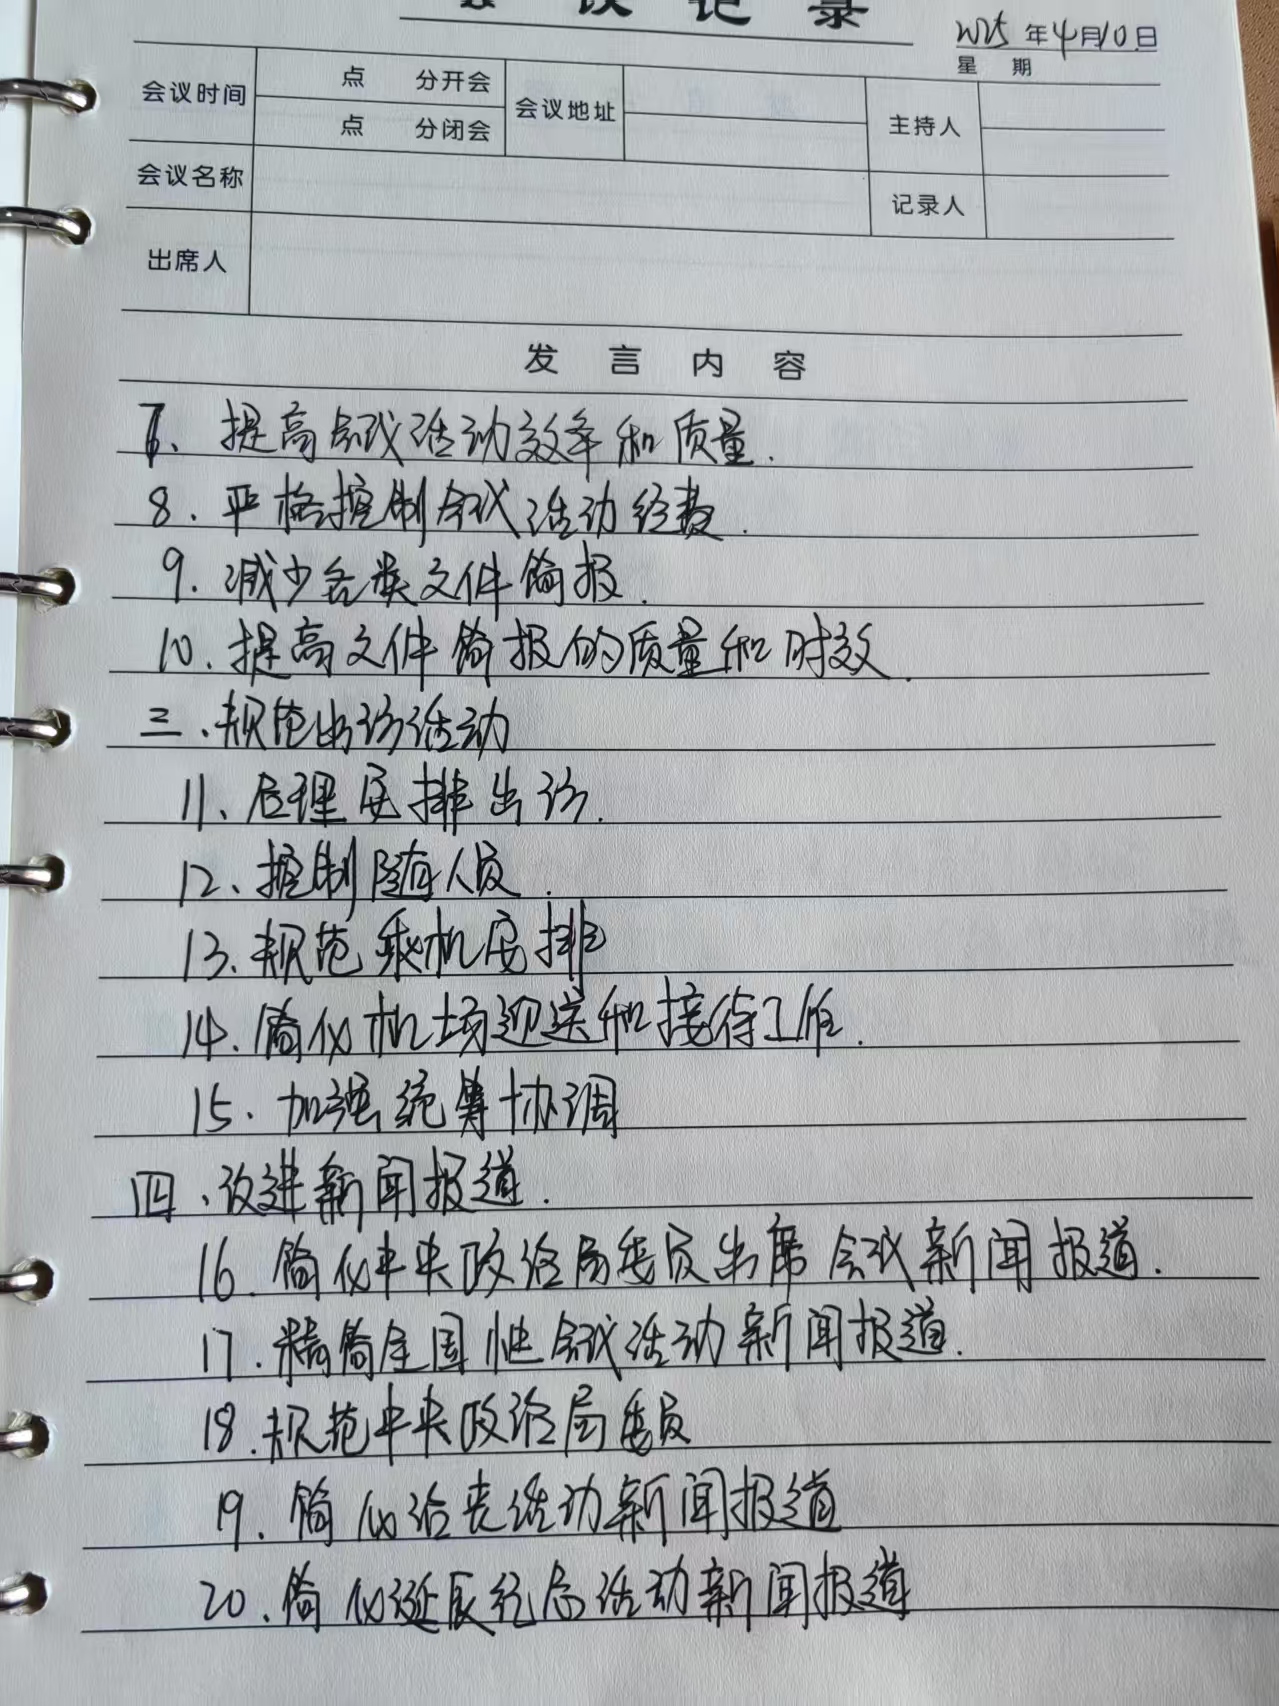 会议记录
2025年4月10日
星 期
会议时间 点 分开会 会议地址 主持人
点 分闭会
会议名称 记录人
出席人
发言内容
7、提高会议活动效率和质量.
8.严格控制会议活动经费.
9.减少各类文件简报.
10.提高文件简报的质量和时效.
三、规范出访活动
11、合理安排出访.
12、控制随人员.
13、规范乘机安排
14、简化机场迎送和接待工作.
15.加强统筹协调
四、改进新闻报道.
16.简化中央政治局委员出席会议新闻报道.
17.精简全国性会议活动新闻报道.
18.规范中央政治局委员
19.简化治丧活动新闻报道
20.简化诞辰纪念活动新闻报道